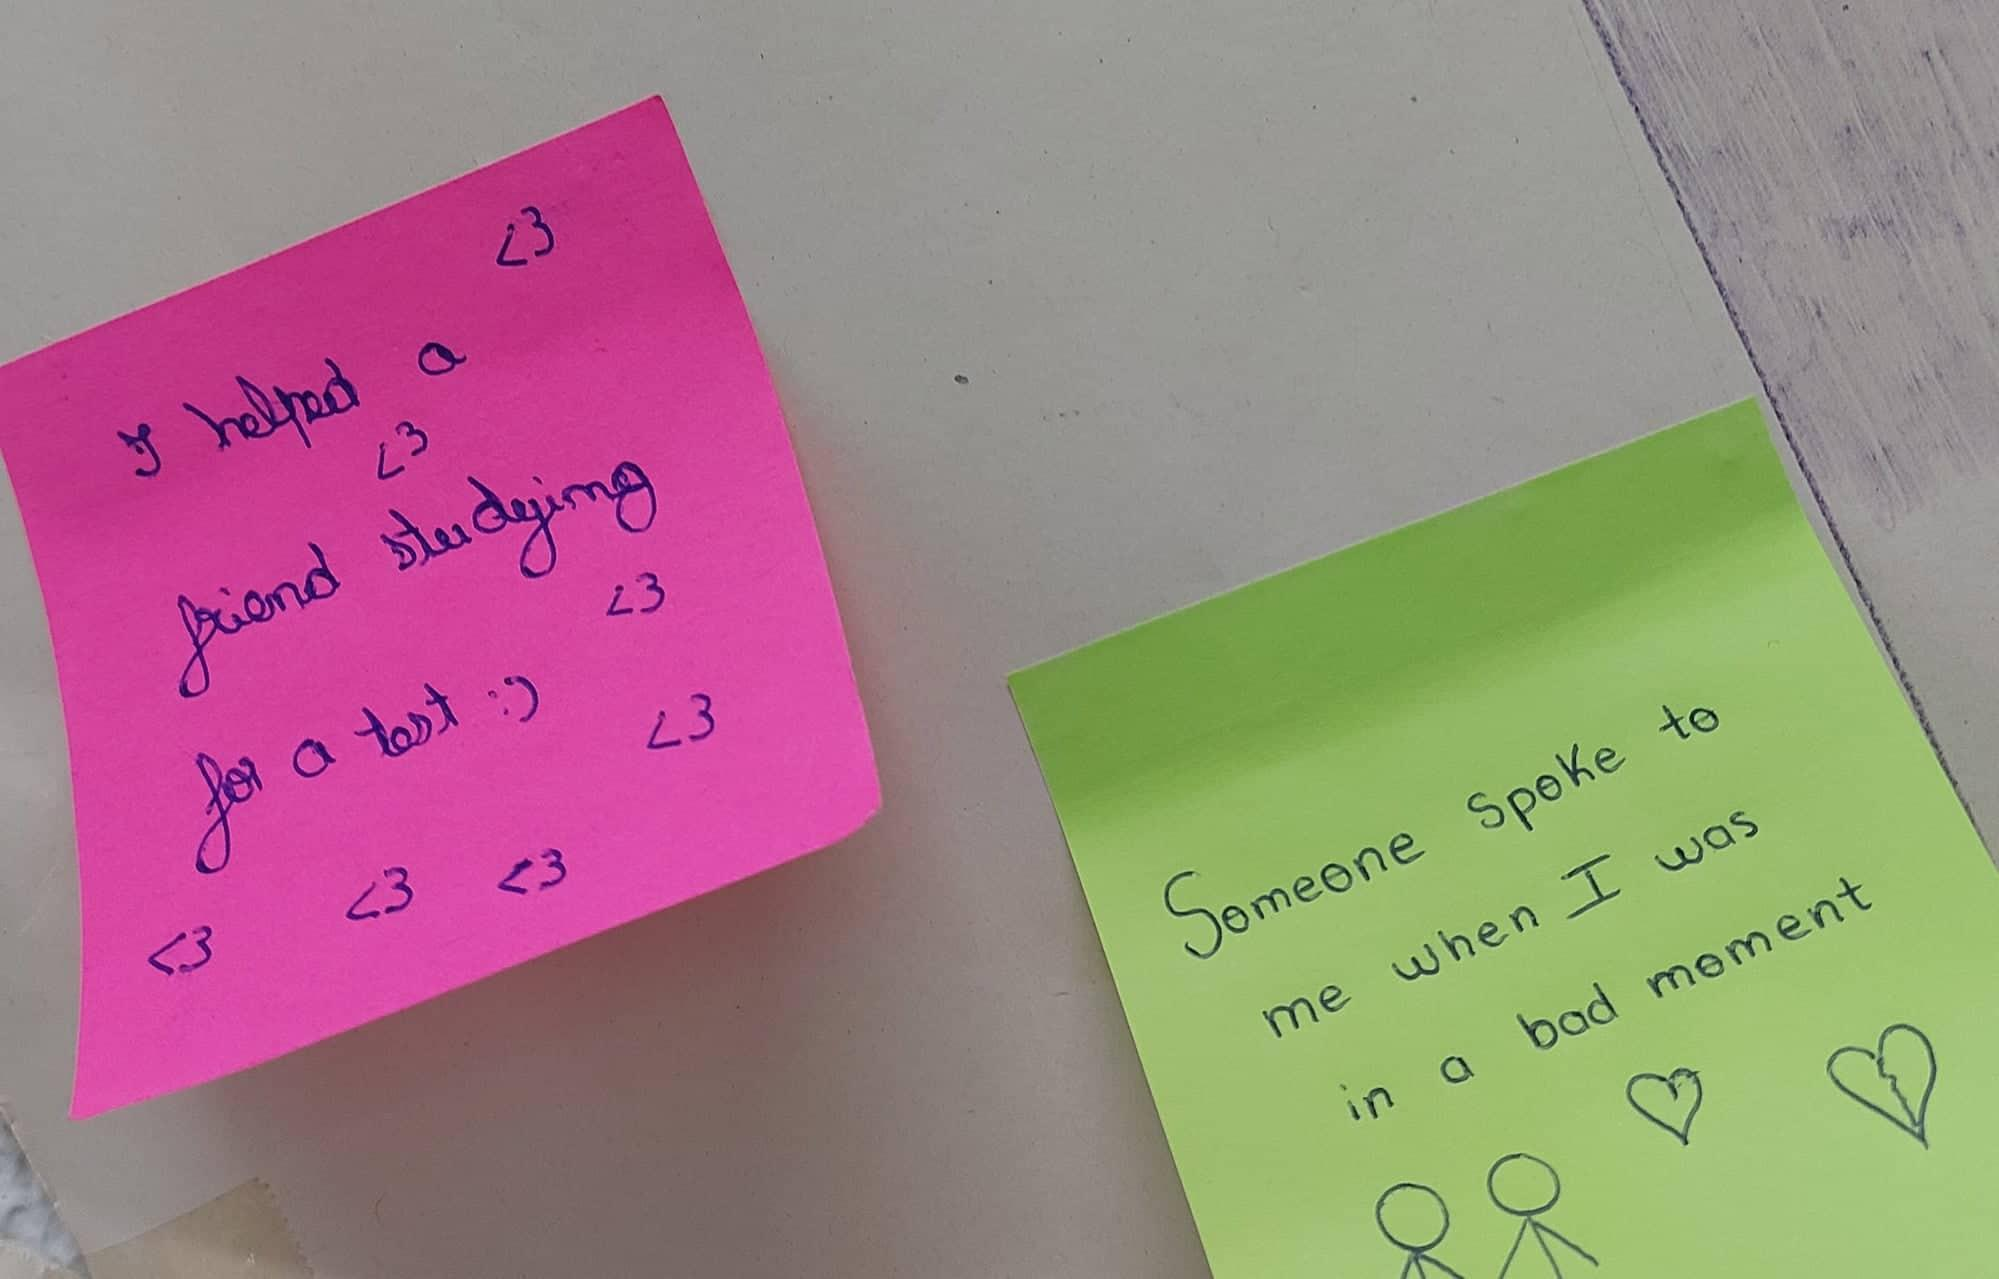 <3
I helped a
<3
friend studying
<3
for a test :)
<3
<3 <3 <3
Someone spoke to
me when I was
in a bad moment